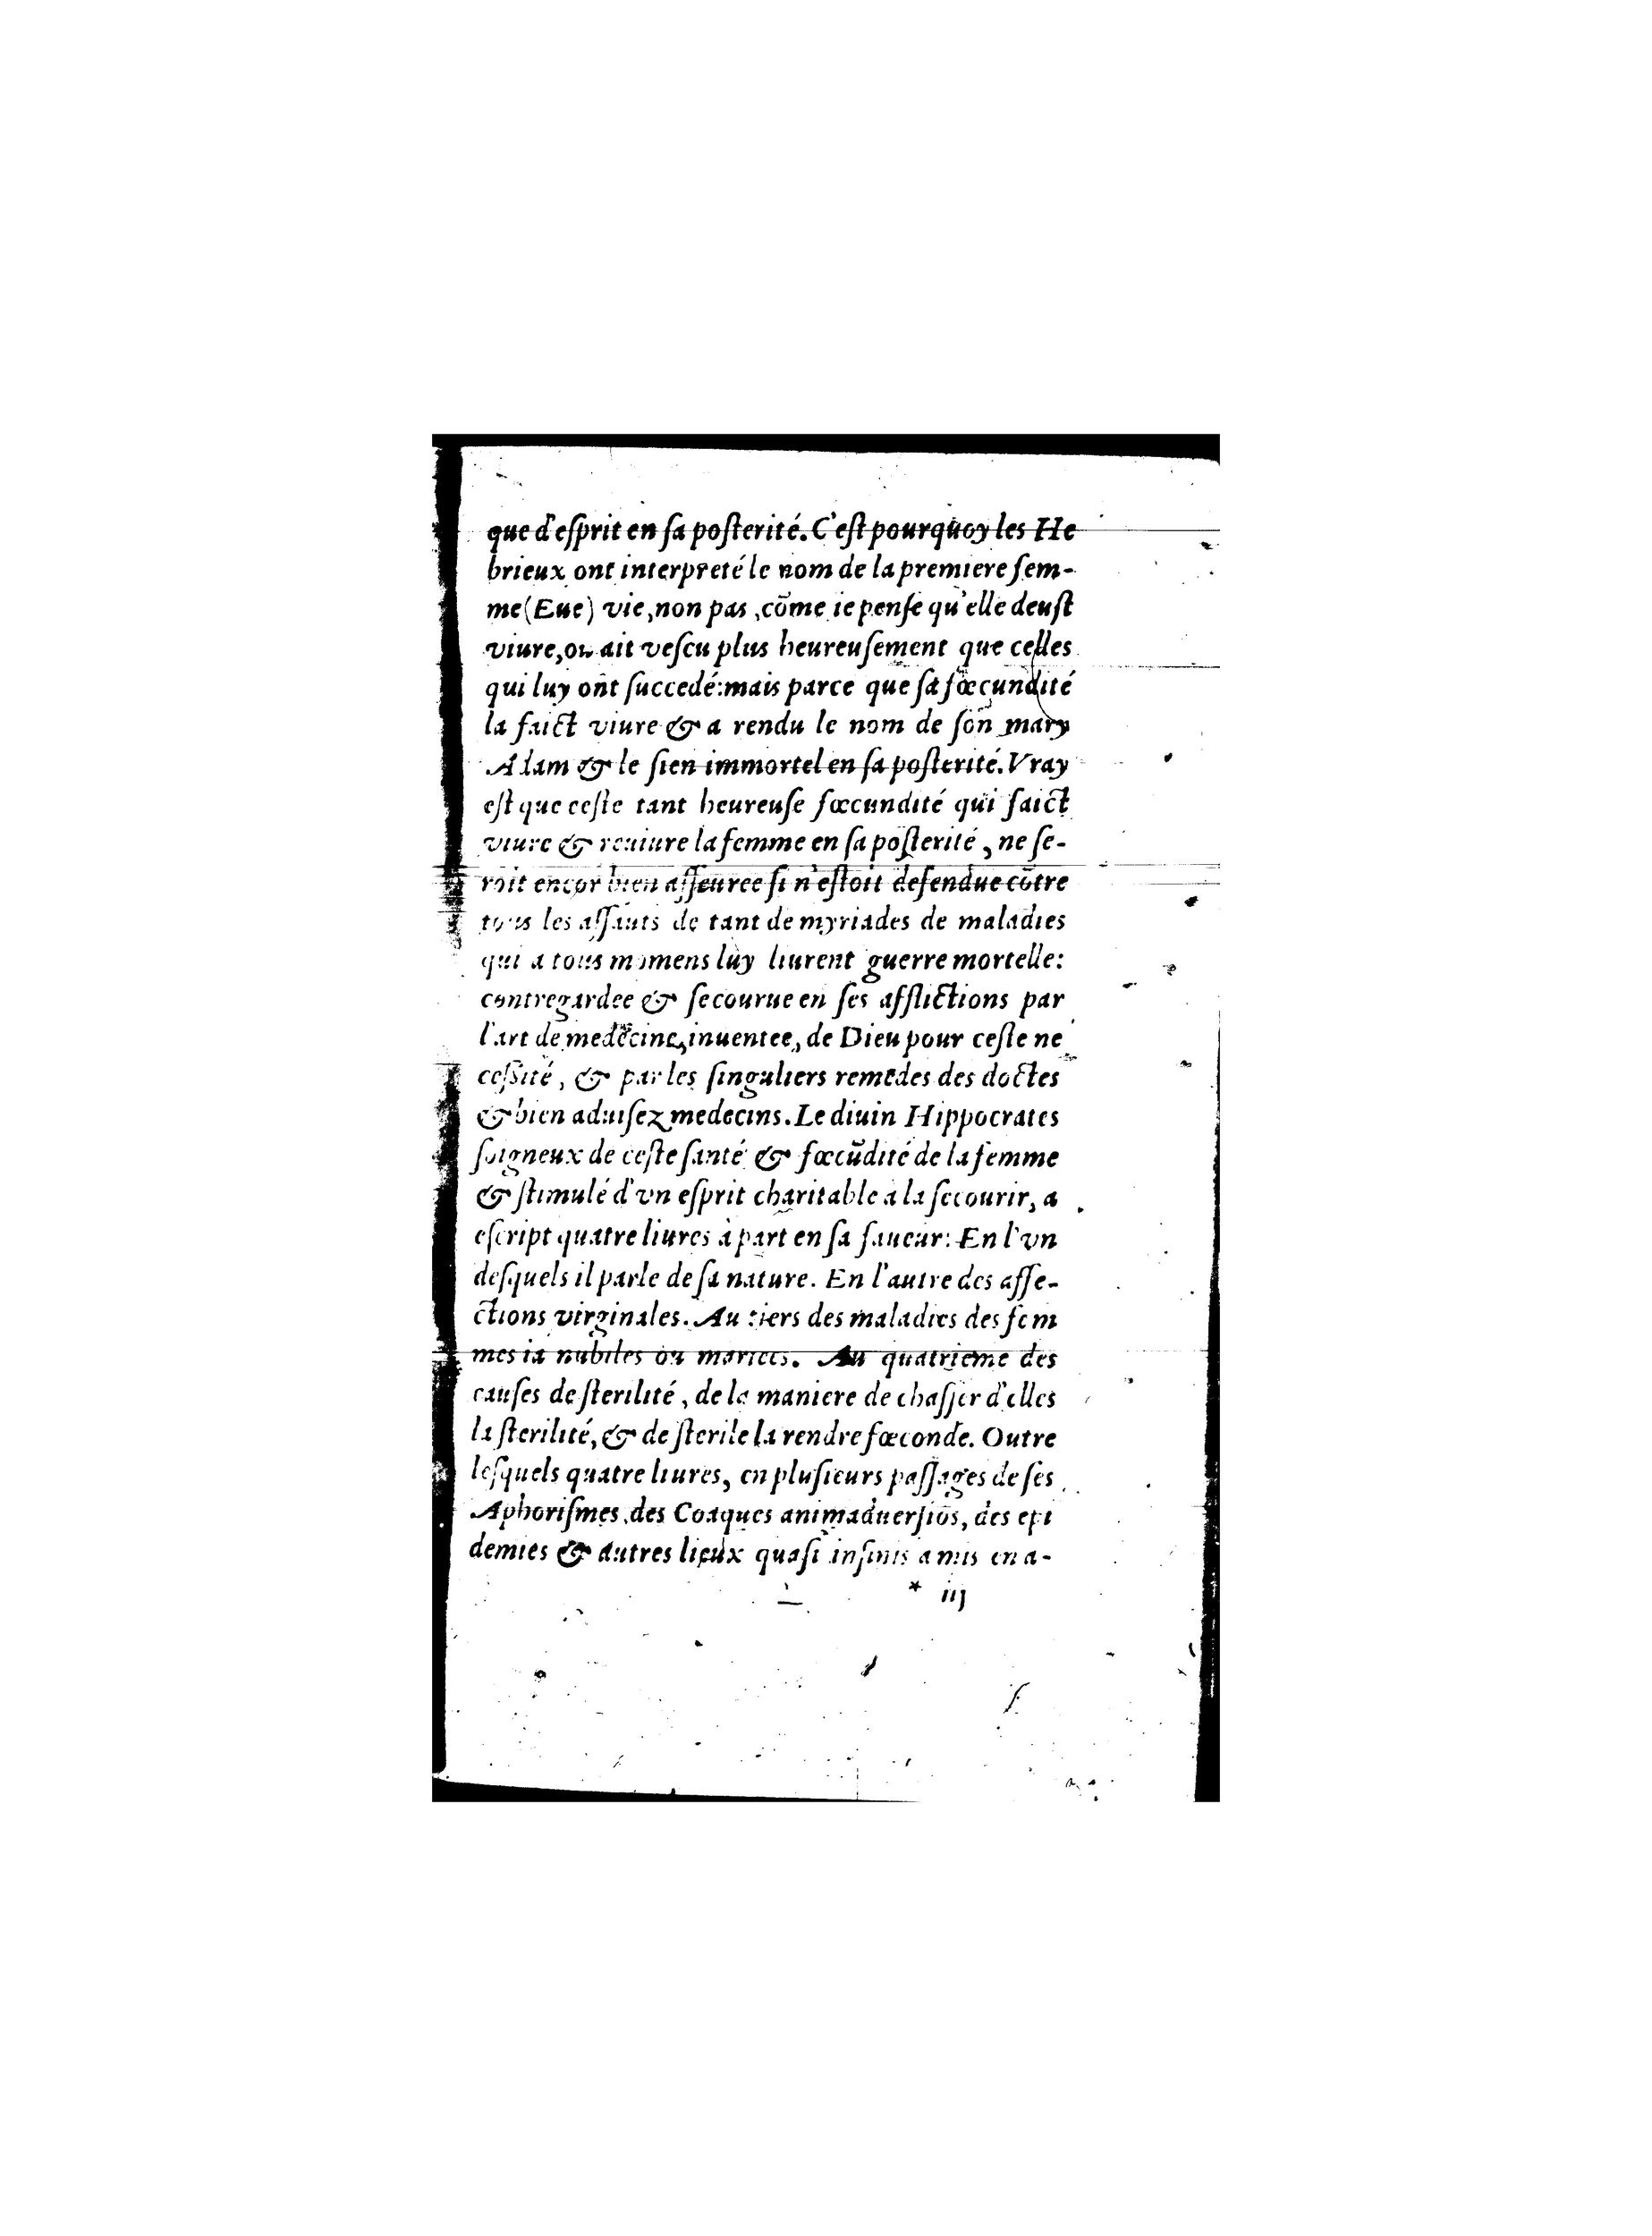 que d'eſprit en ſa poſterité. C'eſt pourquoy les He
brieux ont interpreté le nom de la premiere fem-
me (Eue) vie, non pas, cõme ie penſe qu'elle deuſt
viure, ou ait veſcu plus heureuſement que celles
qui luy ont ſuccedé: mais parce que ſa fœcundité
la faict viure & a rendu le nom de ſon mary
Adam & le ſien immortel en ſa poſterité. Vray
eſt que ceſte tant heureuſe fœcundité qui faict
viure & reuiure la femme en ſa poſterité, ne ſe-
roit encor bien aſſeuree ſi n'eſtoit defendue cõtre
tous les aſſauts de tant de myriades de maladies
qui a tous momens luy liurent guerre mortelle:
contregardee & ſecourue en ſes afflictions par
l'art de medecine, inuentee, de Dieu pour ceſte ne
ceſſité, & par les ſinguliers remedes des doctes
& bien aduiſez medecins. Le diuin Hippocrates
ſoigneux de ceſte ſanté & fœcũdité de la femme
& ſtimulé d'vn eſprit charitable a la ſecourir, a
eſcript quatre liures à part en ſa faueur: En l'vn
deſquels il parle de ſa nature. En l'autre des affe-
ctions virginales. Au tiers des maladies des fem
mes ia nubiles ou mariees. Au quatrieme des
cauſes de ſterilité, de la maniere de chaſſer d'elles
la ſterilité, & de ſterile la rendre fœconde. Outre
leſquels quatre liures, en pluſieurs paſſages de ſes
Aphoriſmes, des Coaques animaduerſiõs, des epi
demies & autres lieux quaſi infinis a mis en a-
* iij